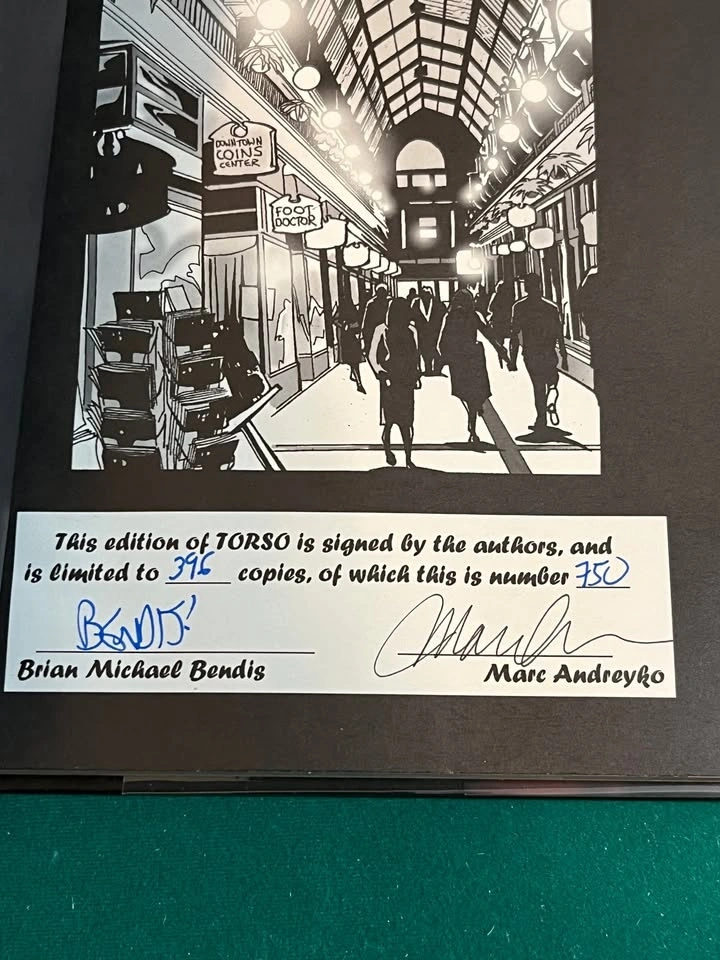 DOWNTOWN
COINS
CENTER
FOOT
DOCTOR
This edition of TORSO is signed by the authors, and
is limited to 396 copies, of which this is number 750
BENDIS!
Brian Michael Bendis
Marc Andreyko